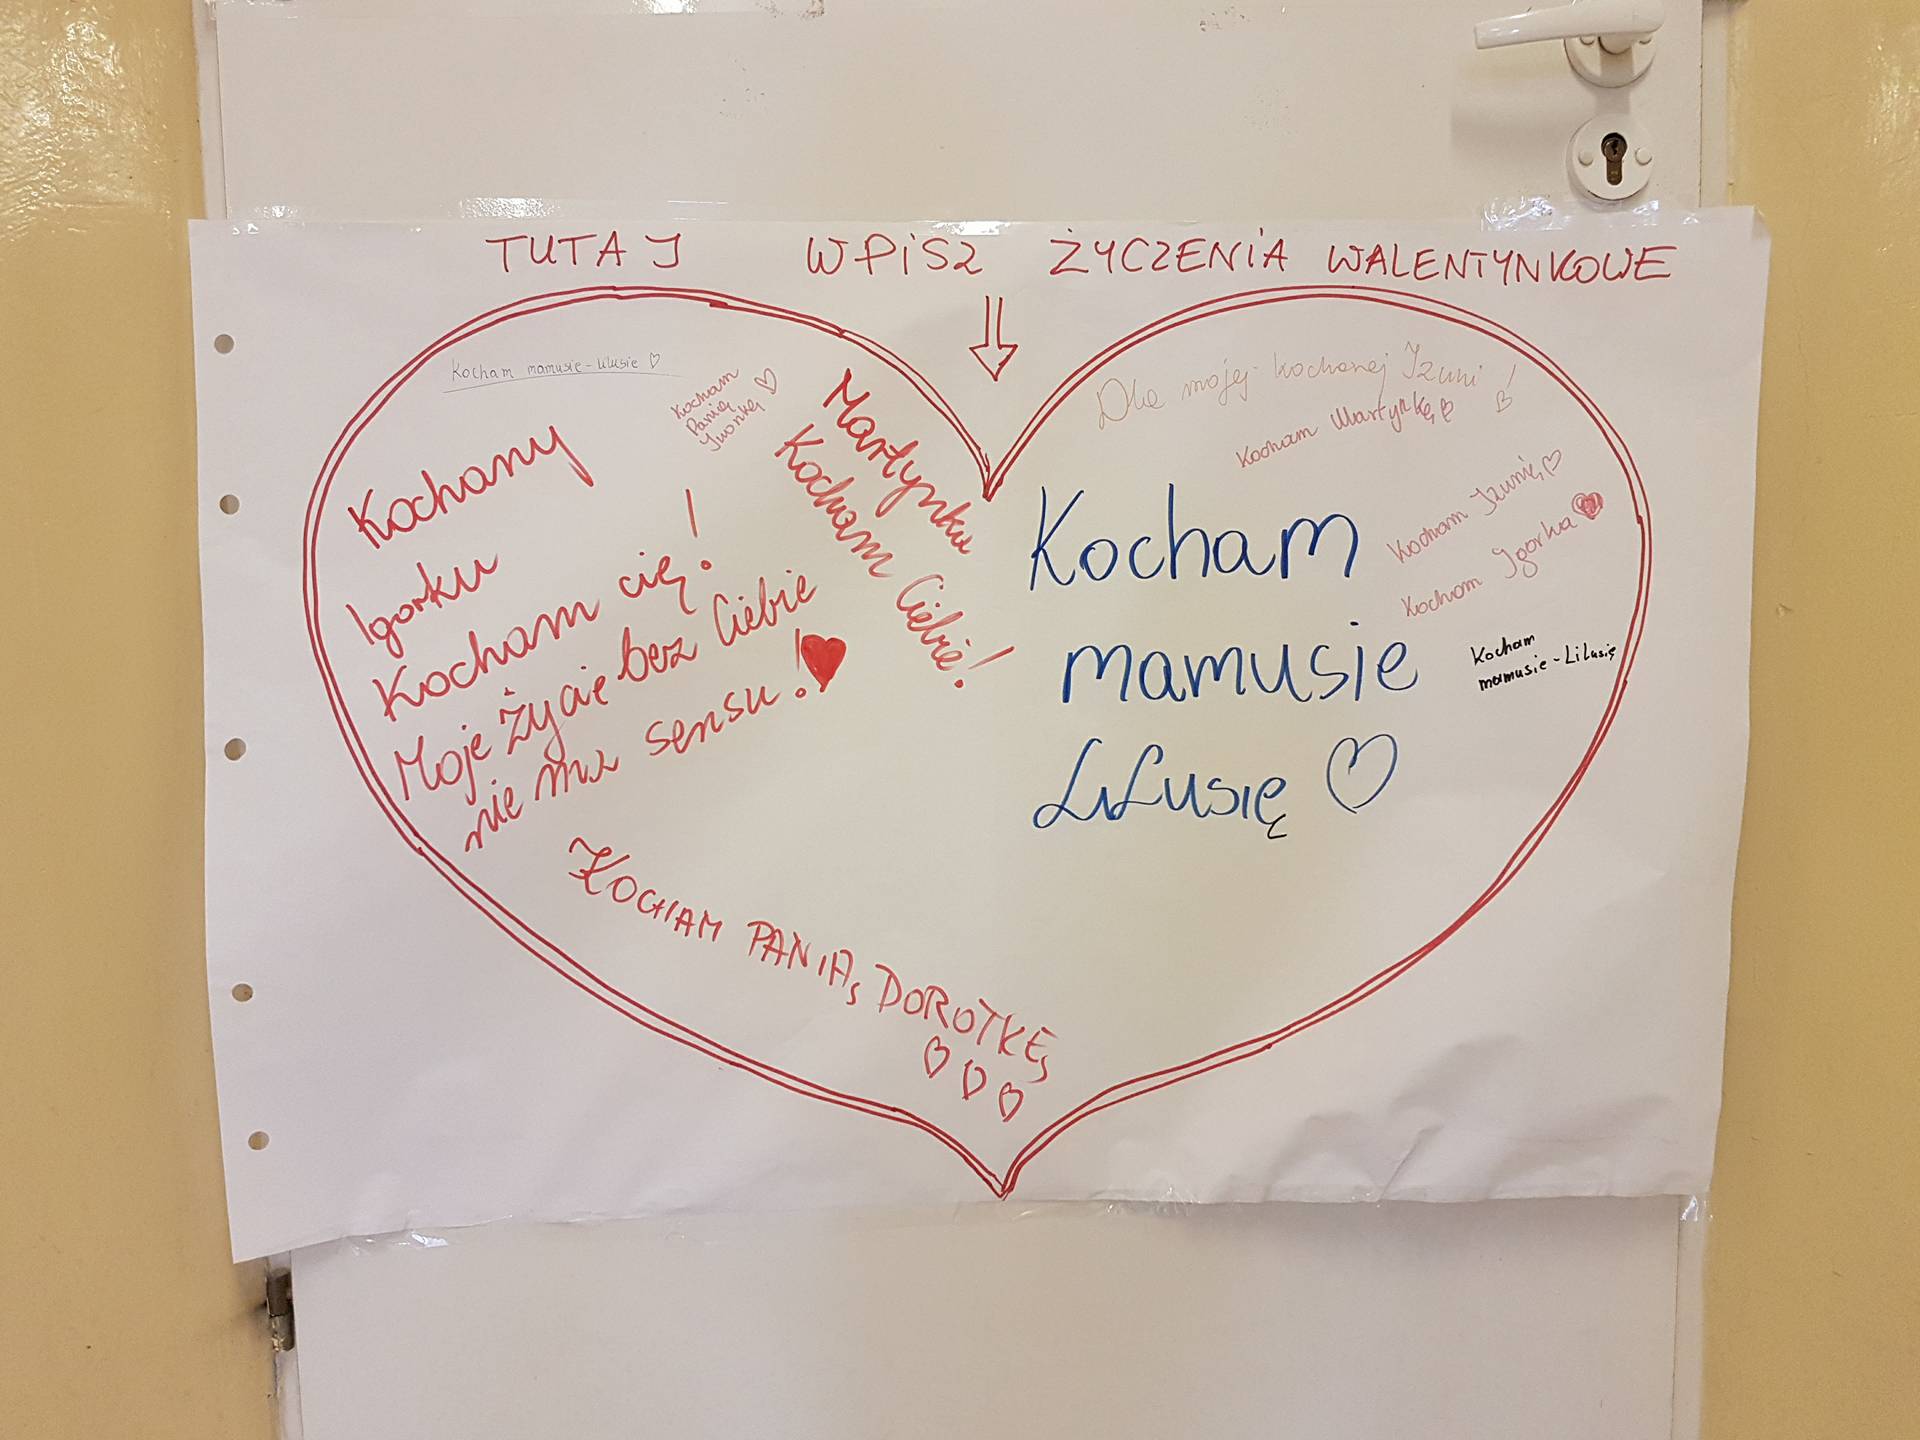 TUTAJ WPiSZ ŻYCZENiA WALENTYNKOWE
Kocham mamusie - Lilusie ♡
Kocham
Panią
Iwonkę ♡
Martynka
Kocham Ciebie!
Kochany
Igorku
Kocham cię!
Moje życie bez Ciebie
nie ma sensu! ♥
KOCHAM PANIĄ DOROTKĘ
♡ ♡ ♡
Dla mojej kochanej Izuni! ♡
Kocham Martynkę ♡
Kocham Izunię ♡
Kocham Igorka ♥
Kocham
mamusie
LiLusię ♡
Kocham
mamusie - LiLusię